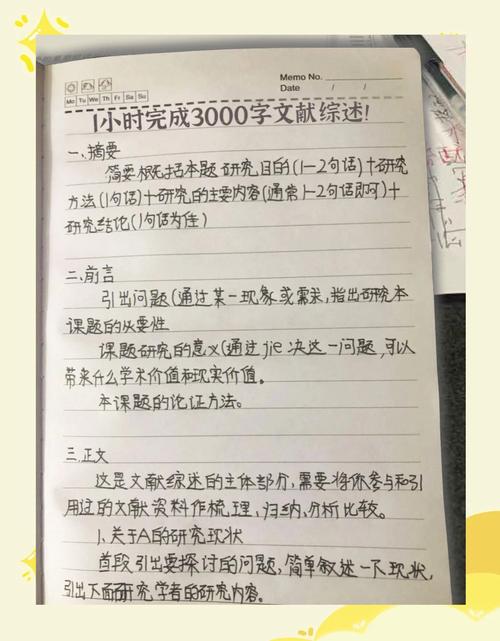 Memo No.
Mo Tu We Th Fr Sa Su
Date / /
1小时完成3000字文献综述!
一、摘要
简要概括本题研究目的(1-2句话)+研究
方法(1句话)+研究的主要内容(通常1-2句话即可)+
研究结论(1句话为佳)
二、前言
引出问题(通过某一现象或需求,指出研究本
课题的必要性
课题研究的意义(通过jie决这一问题,可以
带来什么学术价值和现实价值。
本课题的论证方法。
三、正文
这是文献综述的主体部分,需要将你参与和引
用过的文献资料作梳理、归纳、分析比较。
1、关于A的研究现状
首段引出要探讨的问题,简单叙述一下现状,
引出下面研究学者的研究内容。